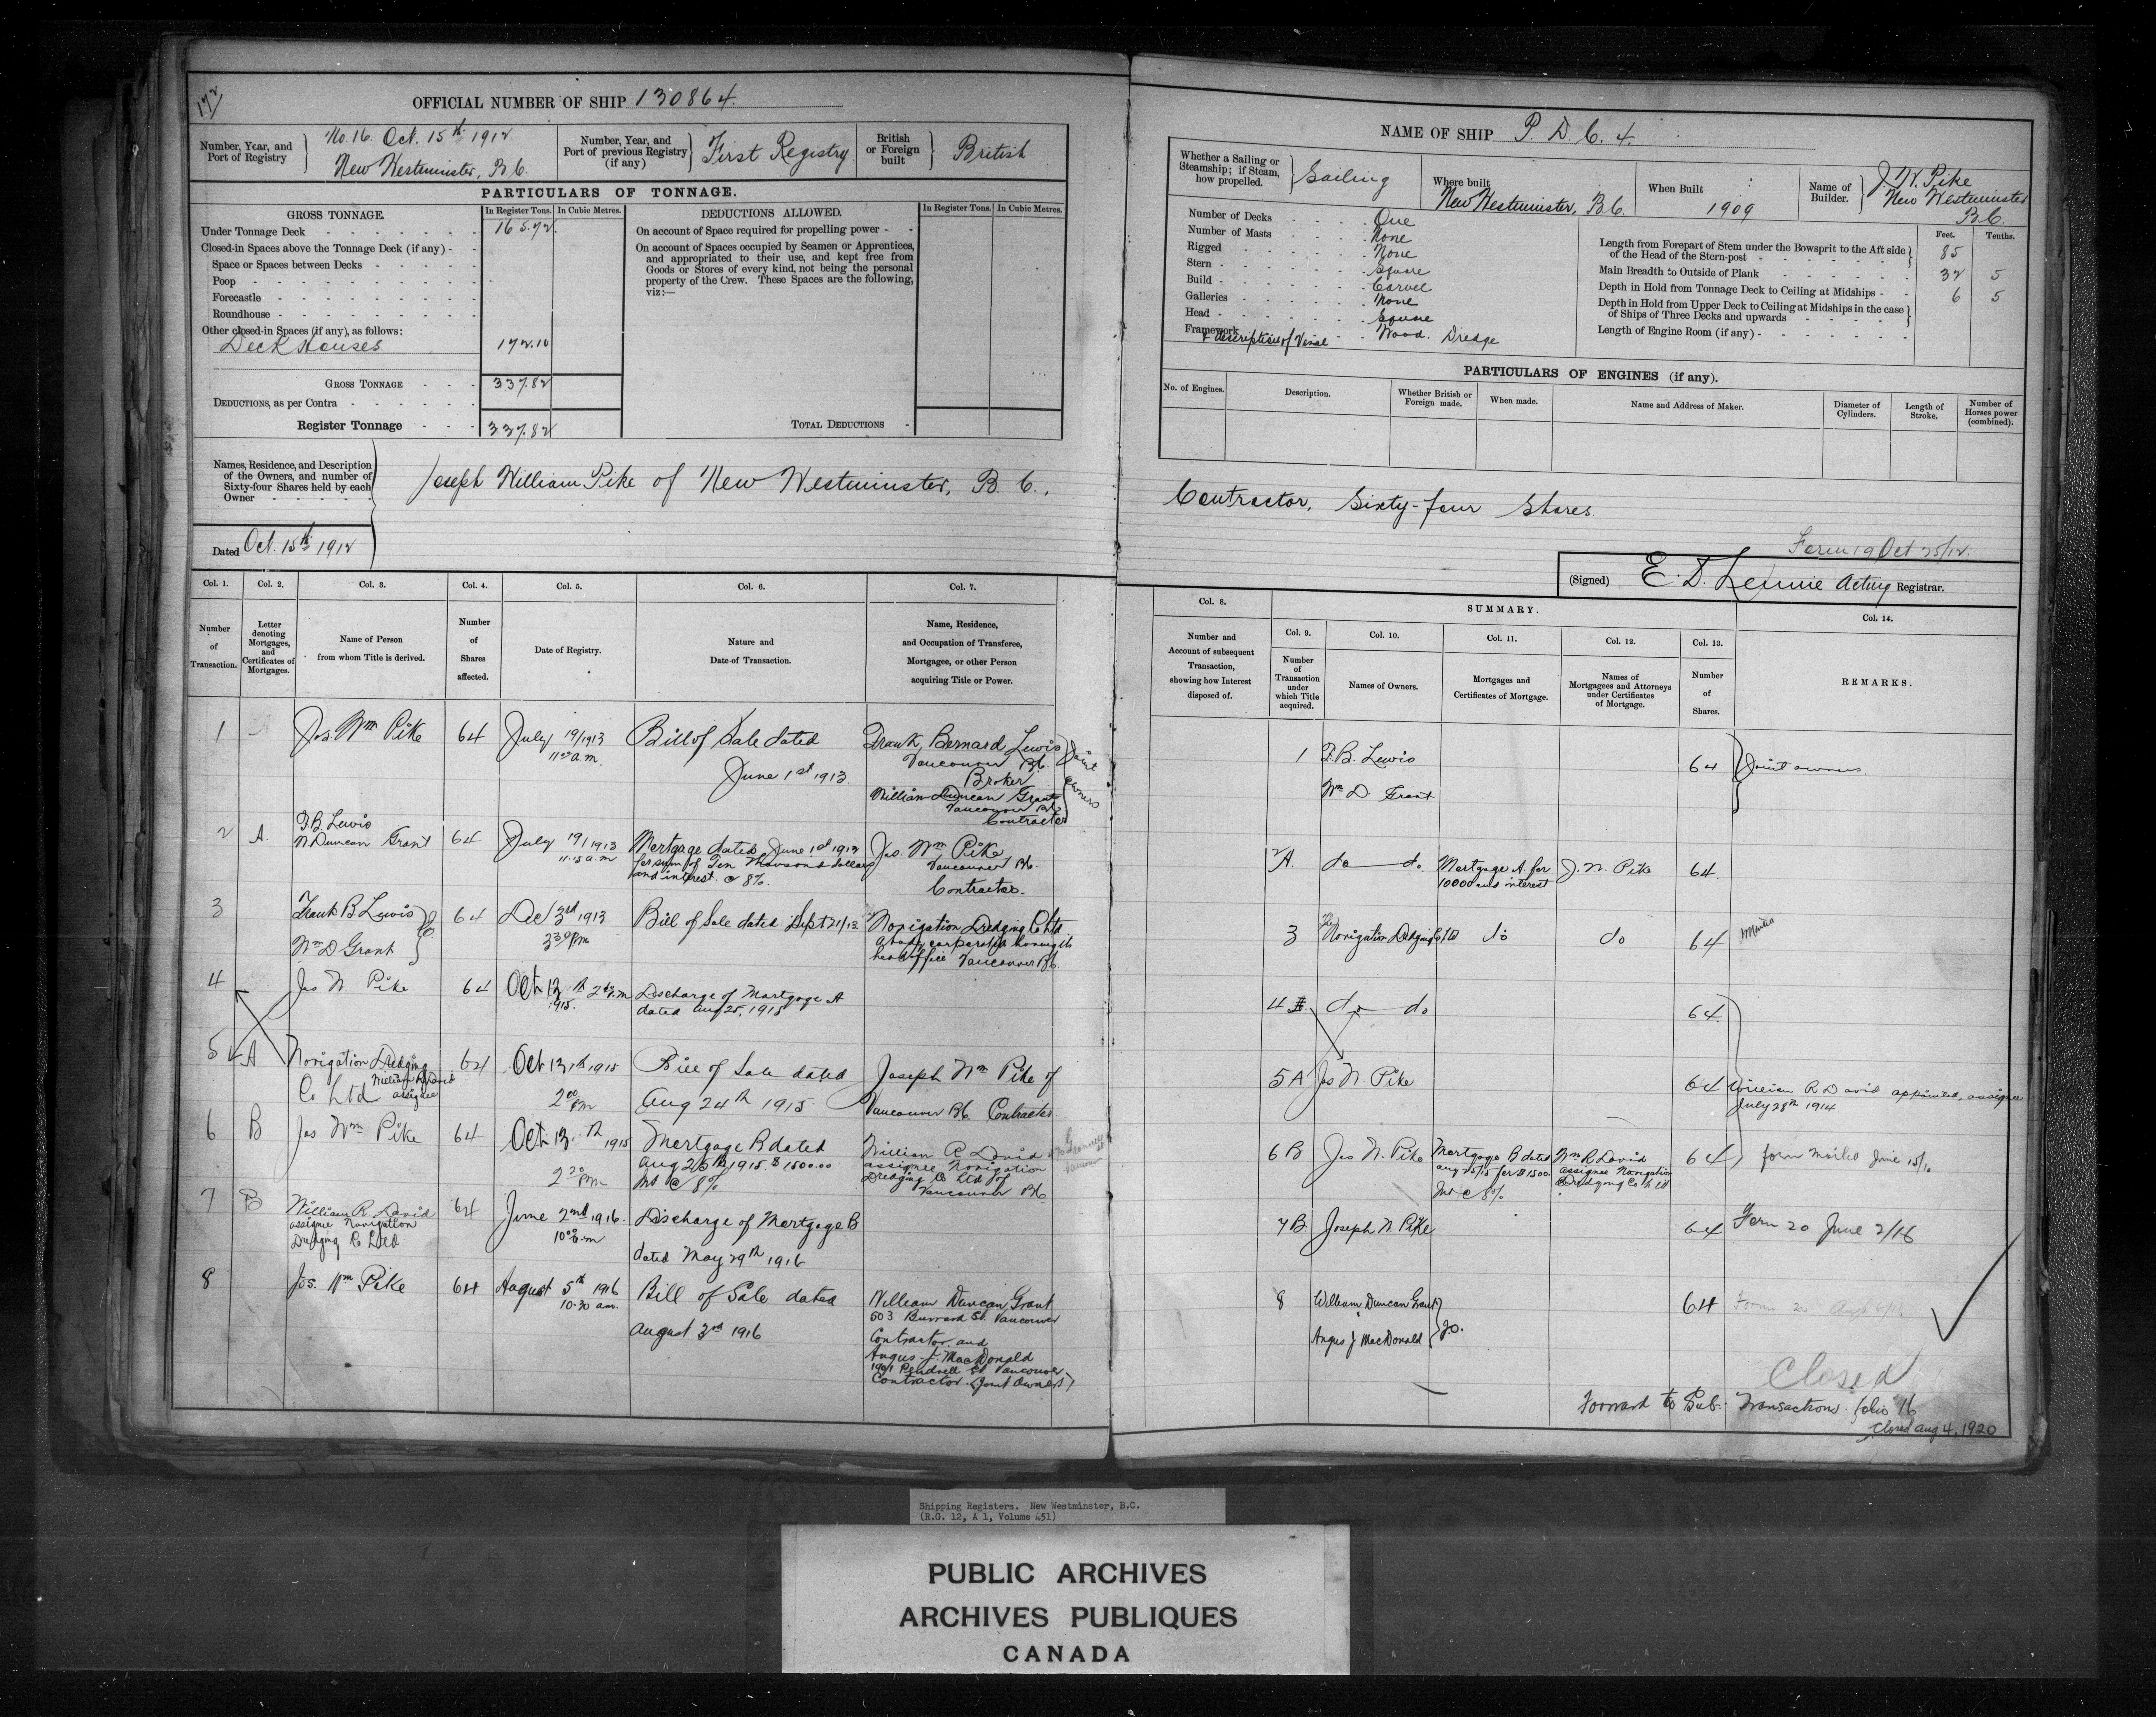 172
OFFICIAL NUMBER OF SHIP 130864.
Number, Year, and Port of Registry
No. 16. Oct. 15th 1912
New Westminster, B.C.
Number, Year, and Port of previous Registry (if any)
First Registry
British or Foreign built
British
PARTICULARS OF TONNAGE.
GROSS TONNAGE.
In Register Tons.
In Cubic Metres.
Under Tonnage Deck
165.72
Closed-in Spaces above the Tonnage Deck (if any)
Space or Spaces between Decks
Poop
Forecastle
Roundhouse
Other closed-in Spaces (if any), as follows:
Deck Houses
172.10
GROSS TONNAGE
337.82
DEDUCTIONS, as per Contra
Register Tonnage
337.82
DEDUCTIONS ALLOWED.
In Register Tons.
In Cubic Metres.
On account of Space required for propelling power
On account of Spaces occupied by Seamen or Apprentices,
and appropriated to their use, and kept free from
Goods or Stores of every kind, not being the personal
property of the Crew. These Spaces are the following,
viz:—
TOTAL DEDUCTIONS
Names, Residence, and Description
of the Owners, and number of
Sixty-four Shares held by each
Owner
Joseph William Pike of New Westminster, B.C.,
Dated Oct. 15th 1912
NAME OF SHIP P. D. C. 4.
Whether a Sailing or Steamship; if Steam, how propelled.
Sailing
Where built
New Westminster, B.C.
When Built
1909
Name of Builder.
J. W. Pike
New Westminster
B.C.
Number of Decks One
Number of Masts None
Rigged None
Stern Square
Build Carvel
Galleries None
Head Square
Framework & description of Vessel Wood. Dredge
Feet. Tenths.
Length from Forepart of Stem under the Bowsprit to the Aft side
of the Head of the Stern-post 85
Main Breadth to Outside of Plank 32 5
Depth in Hold from Tonnage Deck to Ceiling at Midships 6 5
Depth in Hold from Upper Deck to Ceiling at Midships in the case
of Ships of Three Decks and upwards
Length of Engine Room (if any)
PARTICULARS OF ENGINES (if any).
No. of Engines.
Description.
Whether British or Foreign made.
When made.
Name and Address of Maker.
Diameter of Cylinders.
Length of Stroke.
Number of Horses power (combined).
Contractor, Sixty-four Shares.
Form 19 Oct 25/12.
(Signed) E. D. Lennie Acting Registrar.
Col. 1. Col. 2. Col. 3. Col. 4. Col. 5. Col. 6. Col. 7.
Number of Transaction.
Letter denoting Mortgages, and Certificates of Mortgages.
Name of Person from whom Title is derived.
Number of Shares affected.
Date of Registry.
Nature and Date of Transaction.
Name, Residence, and Occupation of Transferee, Mortgagee, or other Person acquiring Title or Power.
1
Jos. Wm Pike
64
July 19/1913
11 00 a.m.
Bill of Sale dated
June 1st 1913.
Frank Bernard Lewis
Vancouver B.C.
Broker
William Duncan Grant
Vancouver B.C.
Contractor
Joint owners
2
A.
F.B. Lewis
W. Duncan Grant
64
July 19/1913
11.15 a.m
Mortgage dated June 1st 1913
for sum of Ten Thousand dollars
and interest @ 8%.
Jos. Wm Pike
Vancouver B.C.
Contractor.
3
Frank B Lewis
Wm D Grant
64
Dec 3rd 1913
3 30 Pm
Bill of Sale dated Sept 21/13
Navigation Dredging Co Ltd
a body corporate having its
head office Vancouver B.C.
4
Jos W. Pike
64
Oct 13th 2 00 P.m
1915.
Discharge of Mortgage A
dated Aug 25, 1915
5
A
Navigation Dredging
Co Ltd William R David assignee
64
Oct 13th 1915
2 00 Pm
Bill of Sale dated
Aug 24th 1915
Joseph Wm Pike of
Vancouver B.C. Contractor
6
B
Jos Wm Pike
64
Oct 13th 1915
2 20 Pm
Mortgage B dated
Aug 25th 1915 $1500.00
Int @ 8%
William R David
assignee Navigation
Dredging Co Ltd of
Vancouver B.C.
7
B
William R David
assignee Navigation
Dredging Co Ltd.
64
June 2nd 1916.
10 00 a.m
Discharge of Mortgage B
dated May 29th 1916
8
Jos. Wm Pike
64
August 5th 1916
10.30 am.
Bill of Sale dated
August 3rd 1916
William Duncan Grant
503 Burrard St. Vancouver
Contractor and
Angus J. MacDonald
1901 Pendrell St. Vancouver
Contractor. (Joint Owners)
Col. 8.
Number and Account of subsequent Transaction, showing how Interest disposed of.
SUMMARY.
Col. 9. Col. 10. Col. 11. Col. 12. Col. 13. Col. 14.
Number of Transaction under which Title acquired.
Names of Owners.
Mortgages and Certificates of Mortgage.
Names of Mortgagees and Attorneys under Certificates of Mortgage.
Number of Shares.
REMARKS.
1 F.B. Lewis
Wm D. Grant
64 Joint owners.
2A. do do
Mortgage A for
10000 and interest
J. W. Pike 64.
3 The Navigation Dredging Co Ltd do do 64
4 do do 64.
5A Jos W. Pike 64
William R David appointed assignee
July 28th 1914
6B Jos W. Pike
Mortgage B dated
Aug 25/15 for $1500.
Int @ 8%
Wm R David
assignee Navigation
Dredging Co Ltd
64
form mailed June 15/16
7B Joseph W. Pike 64 Form 20 June 2/16
8 William Duncan Grant
Angus J MacDonald
J.O.
64
Closed
Forward to Sub. Transactions folio 16
Closed Aug 4, 1920
Shipping Registers. New Westminster, B.C.
(R.G. 12, A 1, Volume 451)
PUBLIC ARCHIVES
ARCHIVES PUBLIQUES
CANADA